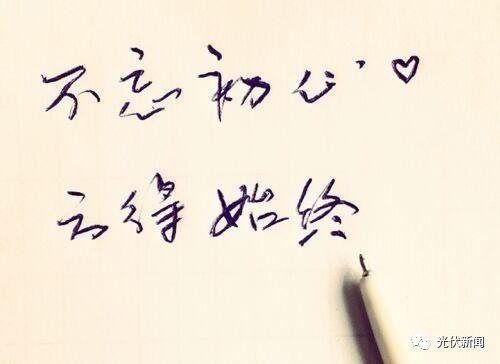 不忘初心♡
方得始终
光伏新闻